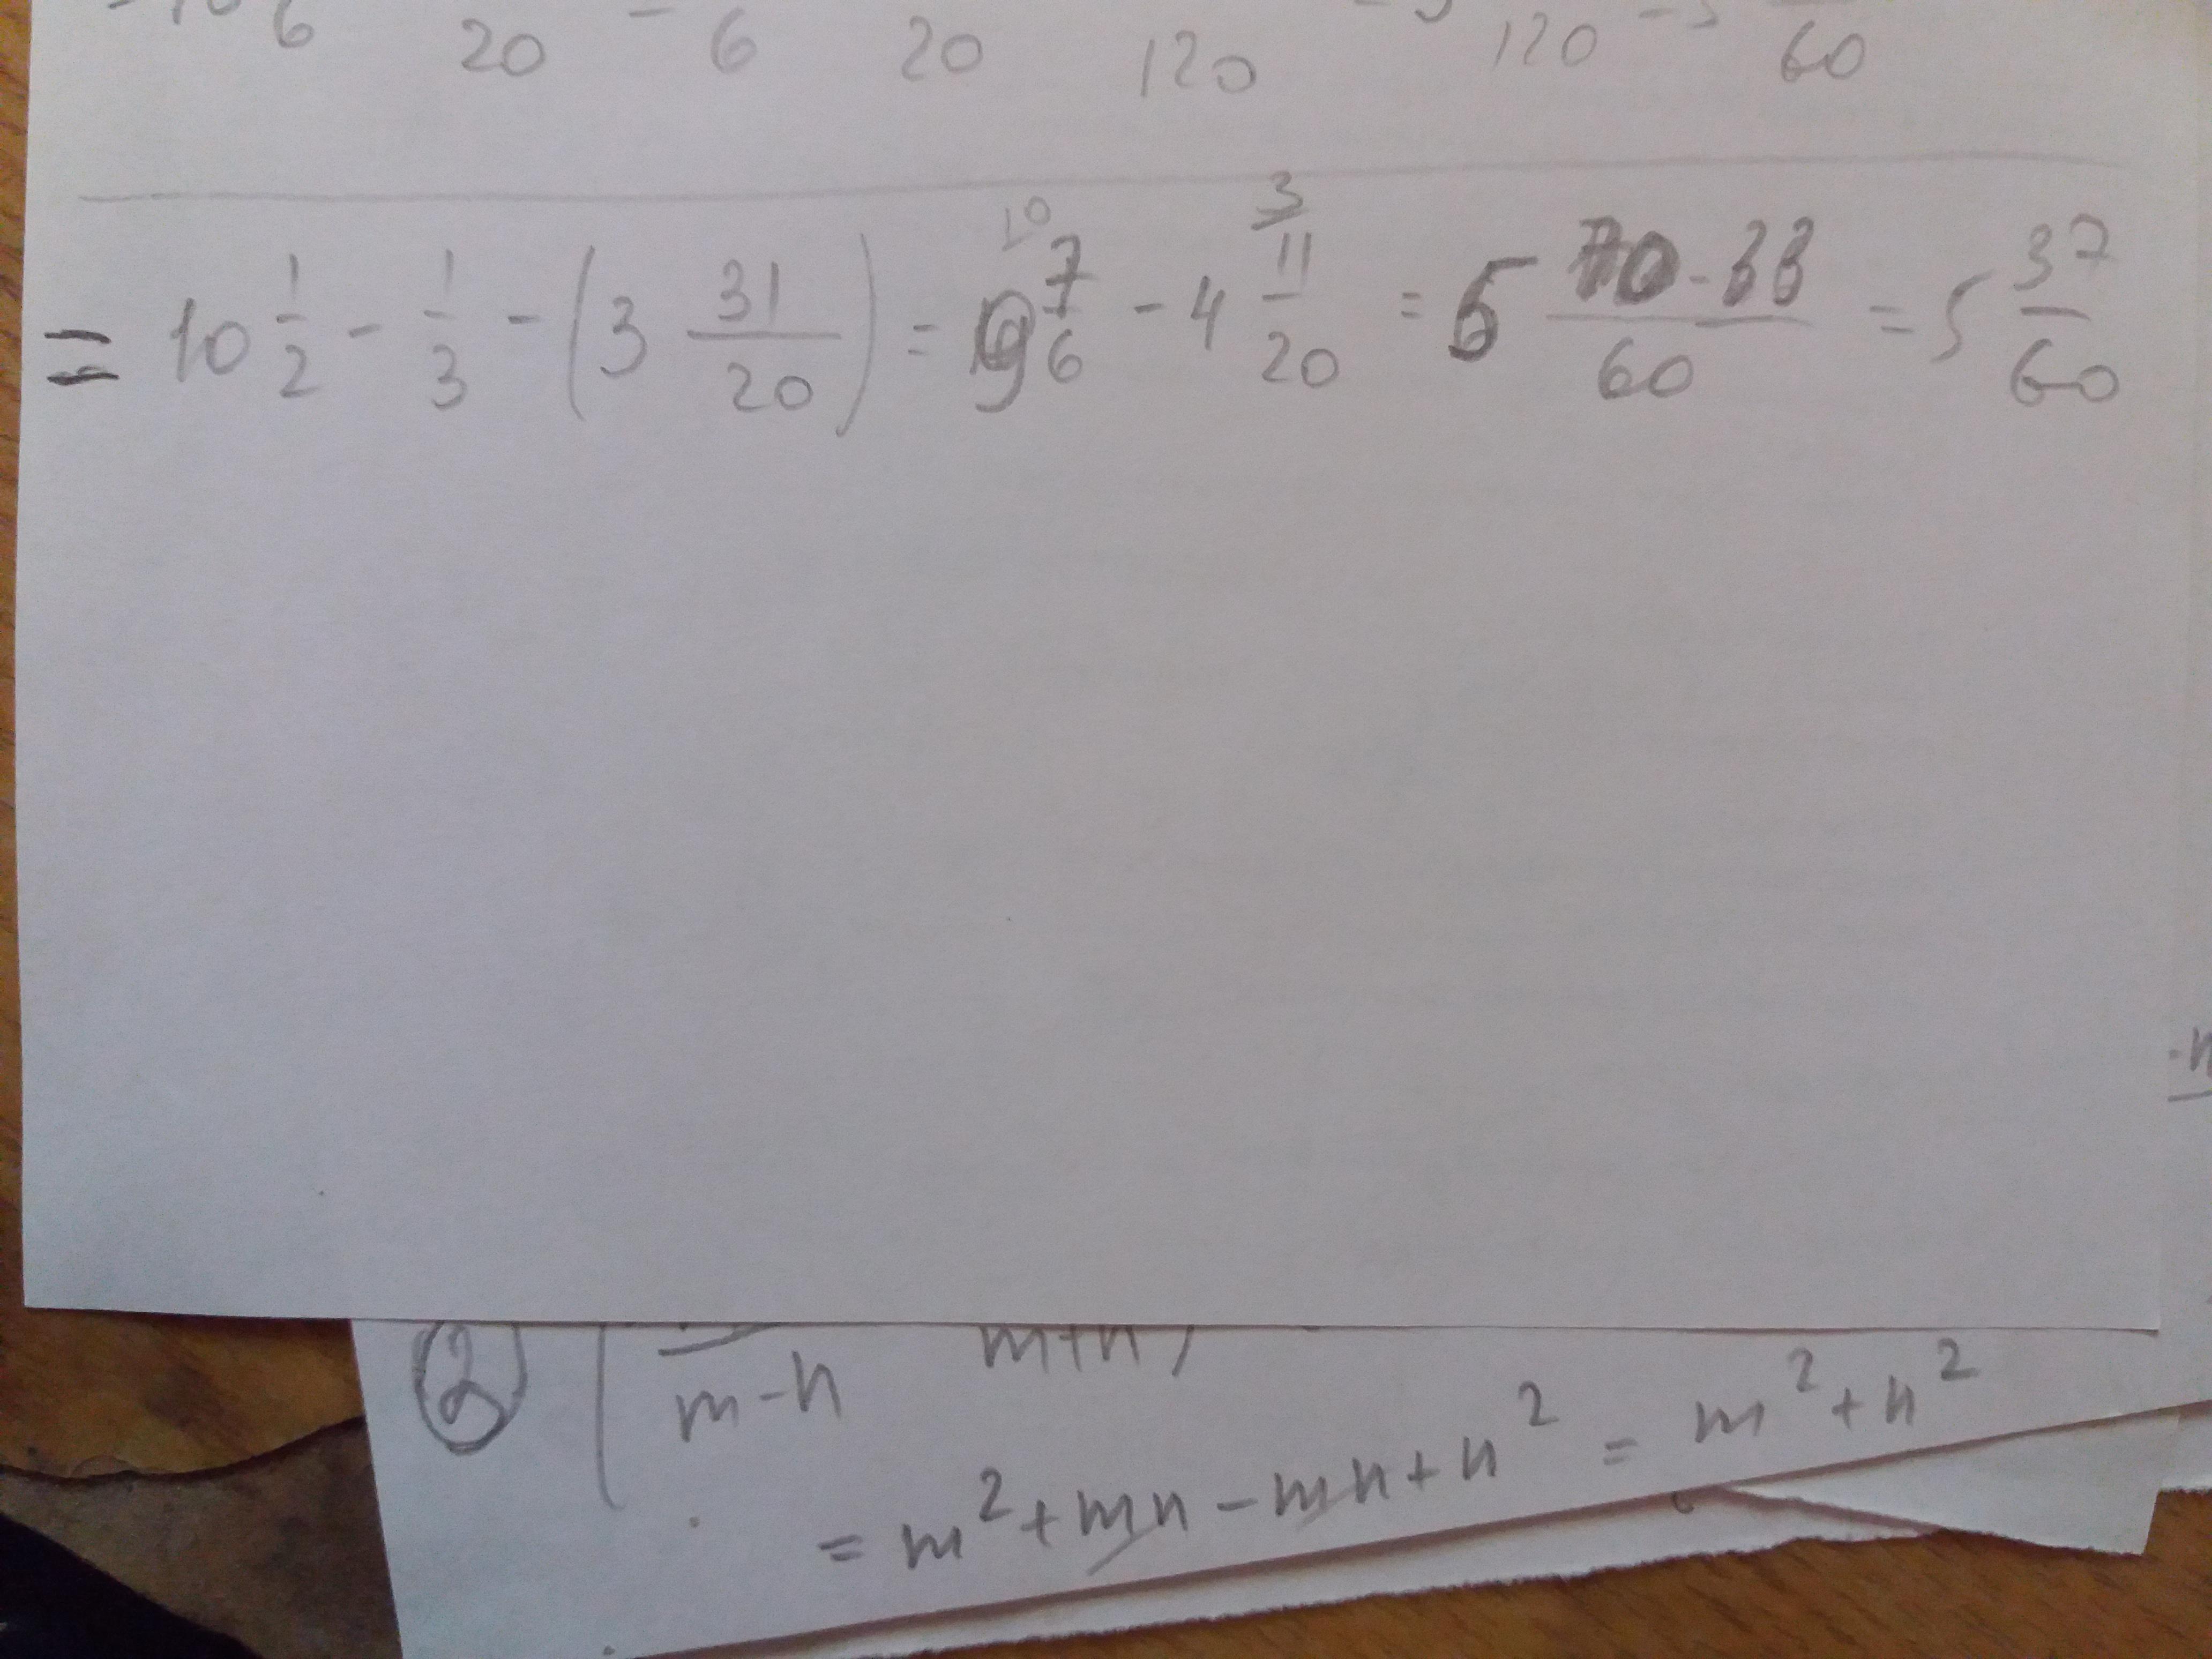 6 20 - 6 20 120 120 60
= 10 1/2 - 1/3 - (3 31/20) = 9 7/6 - 4 11/20 = 5 70-33/60 = 5 37/60
10 3
·n
② ( m-n m+n)
= m²+mn-mn+n² = m²+n²